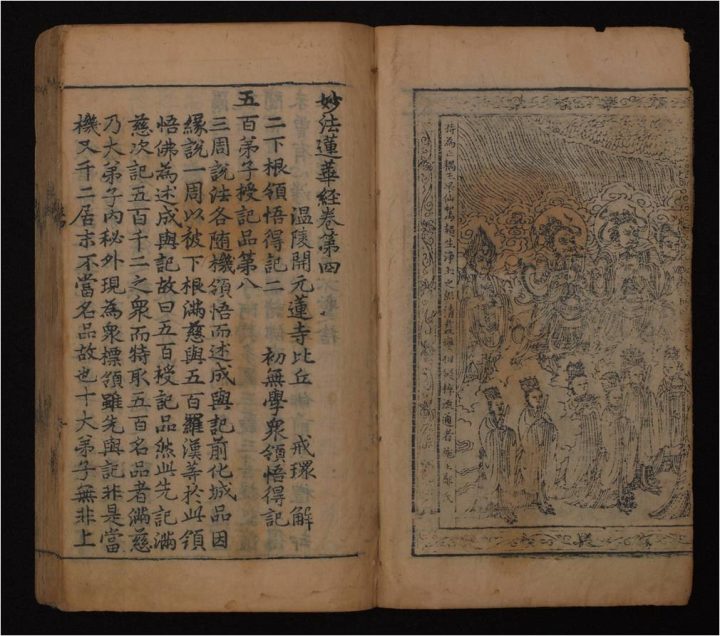 仙駕超生淨土之
妙法蓮華経卷第四
温陵開元蓮寺比丘 戒環解
二下根領悟得記二 初無學衆領悟得記
五百弟子授記品第八
三周說法各随機領悟而述成與記前化城品因
緣說一周以被下根滿慈與五百羅漢等於此領
悟佛為述成與記故曰五百授記品然此先記滿
慈次記五百千二之衆而特取五百名品者滿慈
乃大弟子內秘外現為衆標領雖先與記非是當
機又千二居末不當名品故也十大弟子無非上